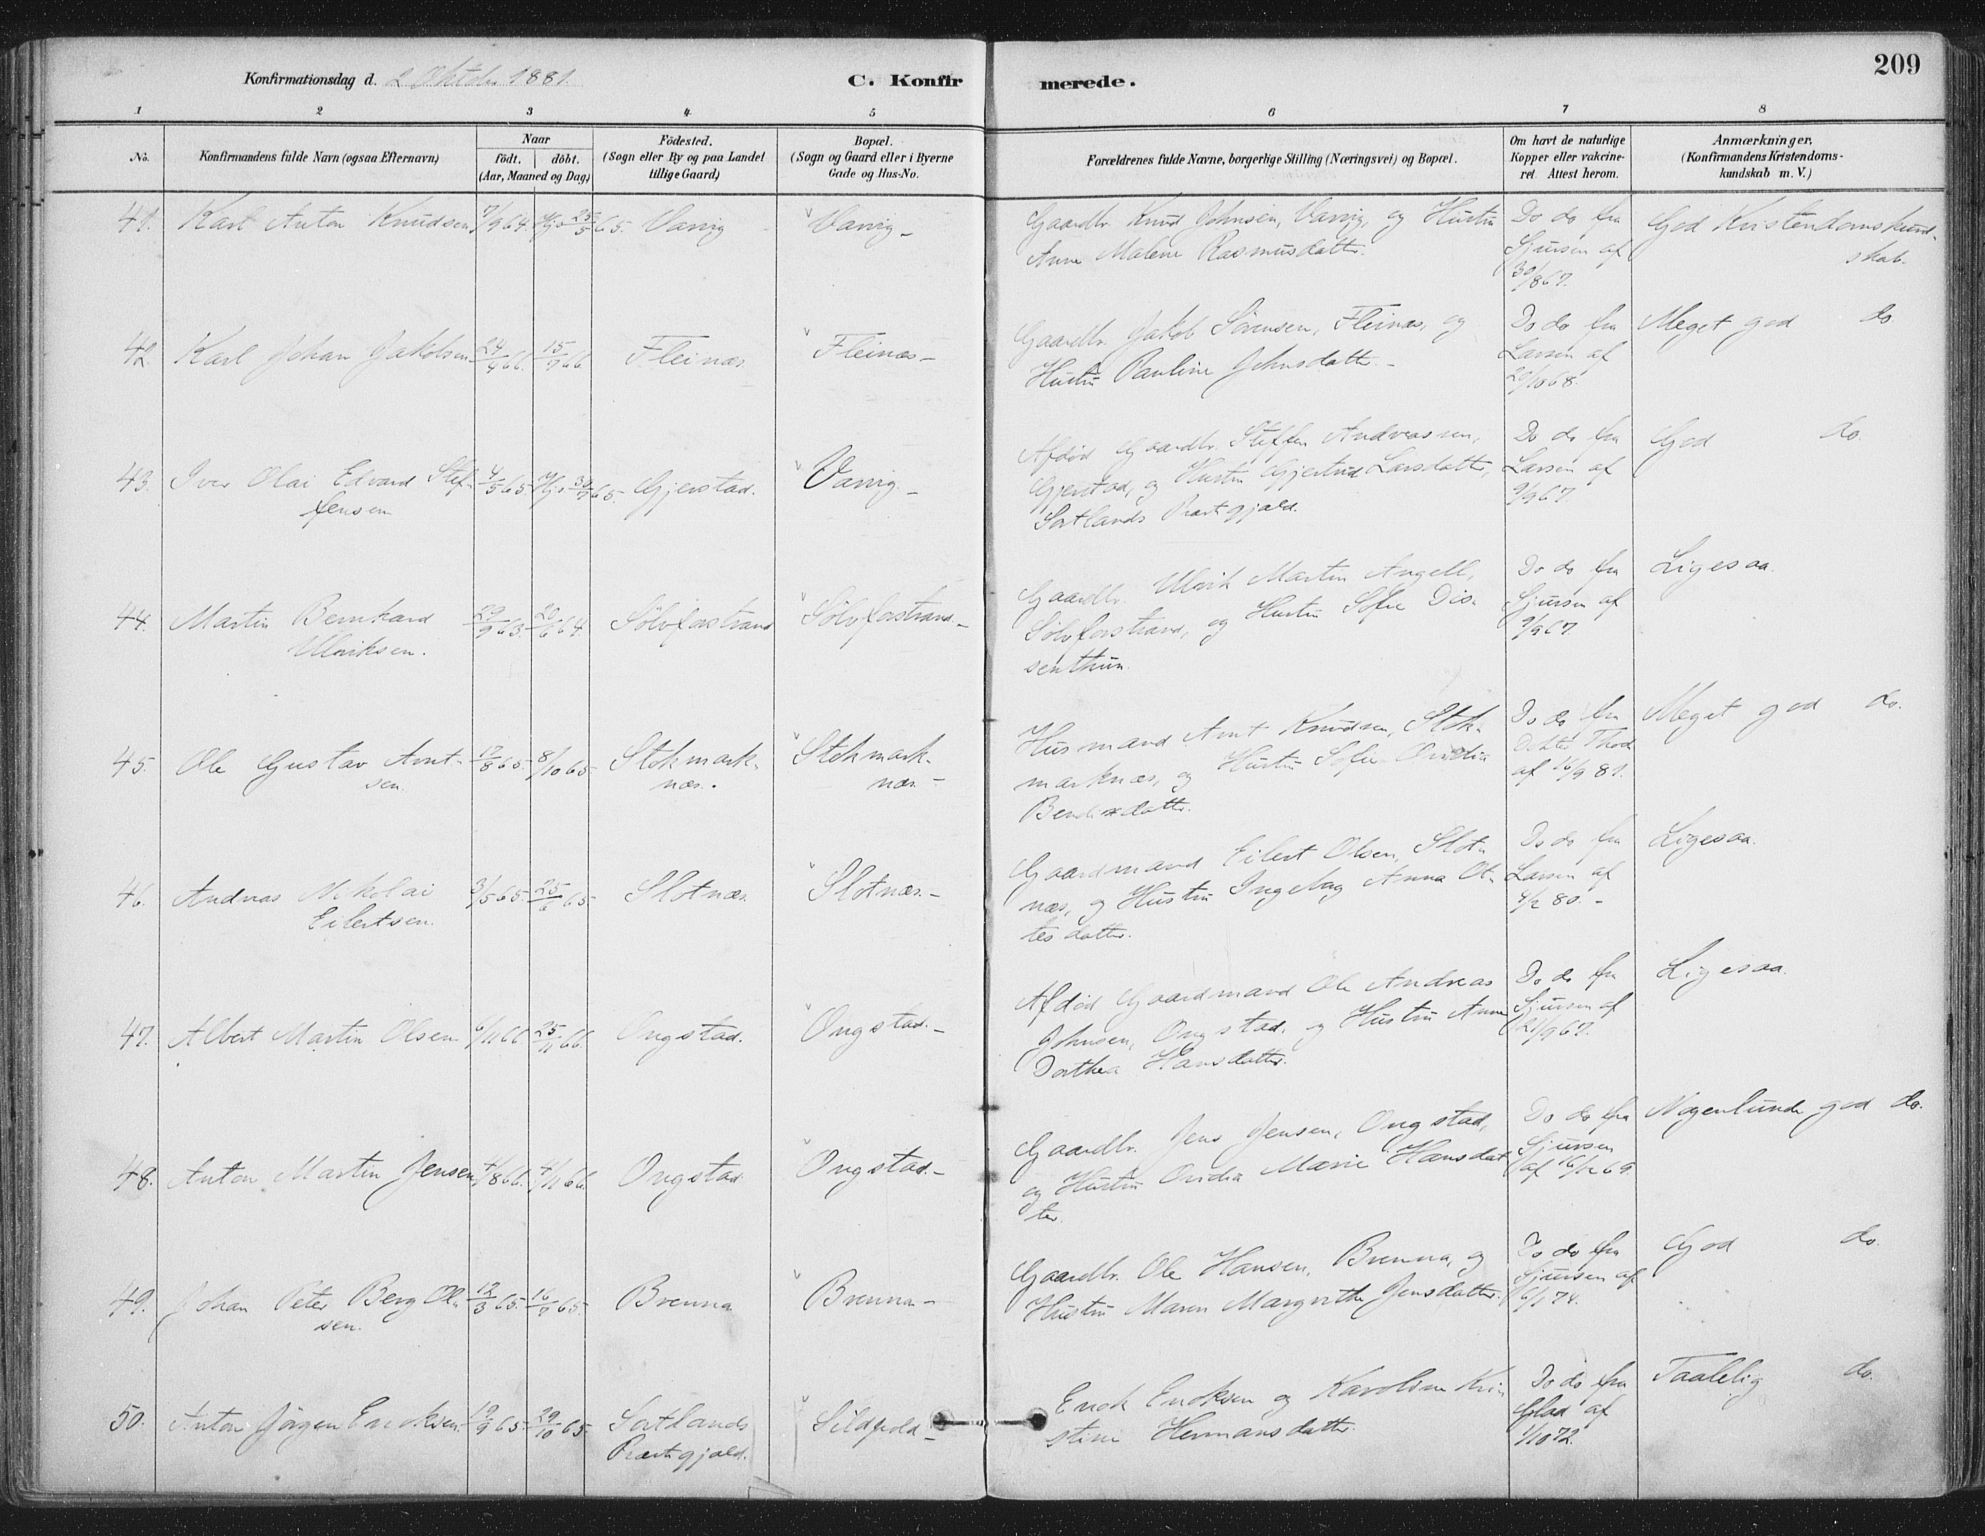 209
Konfirmationsdag d. 2 Oktober 1881.
C. Konfirmerede.
1 2 3 4 5 6 7 8
No.
Konfirmandens fulde Navn (ogsaa Efternavn)
Naar
födt. döbt.
(Aar, Maaned og Dag)
Födested.
(Sogn eller By og paa Landet
tillige Gaard)
Bopæl.
(Sogn og Gaard eller i Byerne
Gade og Hus-No.
Forældrenes fulde Navne, borgerlige Stilling (Næringsvei) og Bopæl.
Om havt de naturlige
Kopper eller vakcine-
ret. Attest herom.
Anmærkninger.
(Konfirmandens Kristendoms-
kundskab m. V.)
41. Karl Anton Knudsen 7/9 64. Hjs 25/5 65. Vaarig Vaarig-
Gaardbr. Knud Johnsen, Vaarig, og Hustru
Anne Malene Rasmusdatter.
Do do fra
Sjursen af
30/8 67.
God Kristendomskund-
skab.
42. Karl Johan Jakobsen 24/4 66. 15/7 66 Fleinæs Fleinæs-
Gaardbr. Jakob Sörensen, Fleinæs, og
Hustru Pauline Johnsdatter.-
Do do fra
Larsen af
20/10 68.
Meget god do
43. Iver Olai Edvard Stef-
fensen
4/5 65. Hjs 30/7 65. Gjerstad. Vaarig.-
Afdöd Gaardbr. Steffen Andreassen,
Gjerstad, og Hustru Gjertrud Larsdatter,
Sortlands Præstegjæld.
Do do fra
Larsen af
9/9 67.
God do.
44. Martin Bernhard
Ulriksen.
29/9 63. 20/6 64. Sölvforstrand Sölvforstrand.-
Gaardbr. Ulrik Martin Angell,
Sölvforstrand, og Hustru Sofie Dis-
senthun.
Do do fra
Sjursen af
9/9 67.
Ligesaa.
45. Ole Gustav Arnt-
sen.
17/8 65. 8/10 65 Stokmark-
næs.
Stokmark-
næs.-
Husmand Arnt Knudsen, Stok-
marknæs, og Hustru Sofie Ovidia
Bendixdatter.
Do do fra
Dokter Thode
af 16/9 81.
Meget god do.
46. Andreas Nikolai
Eilertsen.
3/5 65. 25/6 65 Slotnæs. Slotnæs.-
Gaardmand Eilert Olsen, Slot-
næs, og Hustru Ingebog Anna Ot-
tesdatter.
Do do fra
Larsen af
4/2 80.-
Ligesaa.
47. Albert Martin Olsen 6/11 66 25/11 66 Ongstad. Ongstad.-
Afdöd Gaardmand Ole Andreas
Johnsen, Ongstad, og Hustru Anne
Dorthea Hansdatter.
Do do fra
Sjursen af
21/9 67.
Ligesaa.
48. Anton Martin Jensen 4/8 66. 4/11 66. Ongstad Ongstad.-
Gaardbr. Jens Jensen, Ongstad,
og Hustru Ovidia Marie Hansdat-
ter.
Do do fra
Sjursen
af 16/12 69.
Nogenlunde god do.
49. Johan Peter Berg Ol-
sen.
12/3 65. 16/7 65. Brenna Brenna-
Gaardbr. Ole Hansen, Brenna, og
Hustru Maren Margrethe Jensdatter.
Do do fra
Sjursen af
6/1 74.
God do.
50. Anton Jörgen Enoksen. 19/9 65. 29/10 65. Sortlands
Præstegjæld.
Sildpold-
Enok Enoksen og Karoline Kri-
stine Hermansdatter.
Do do fra
Glad af
1/10 72.
Taalelig do.